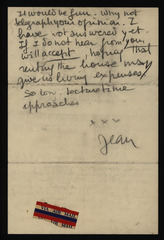 It would be fun. Why not
telegraph your opinion. I
have not answered yet.
If I do not hear from you,
will accept, hoping that
renting the house may
give us living expenses/
So long. lecture time
approaches
x x x
Jean
VIA AIR MAIL